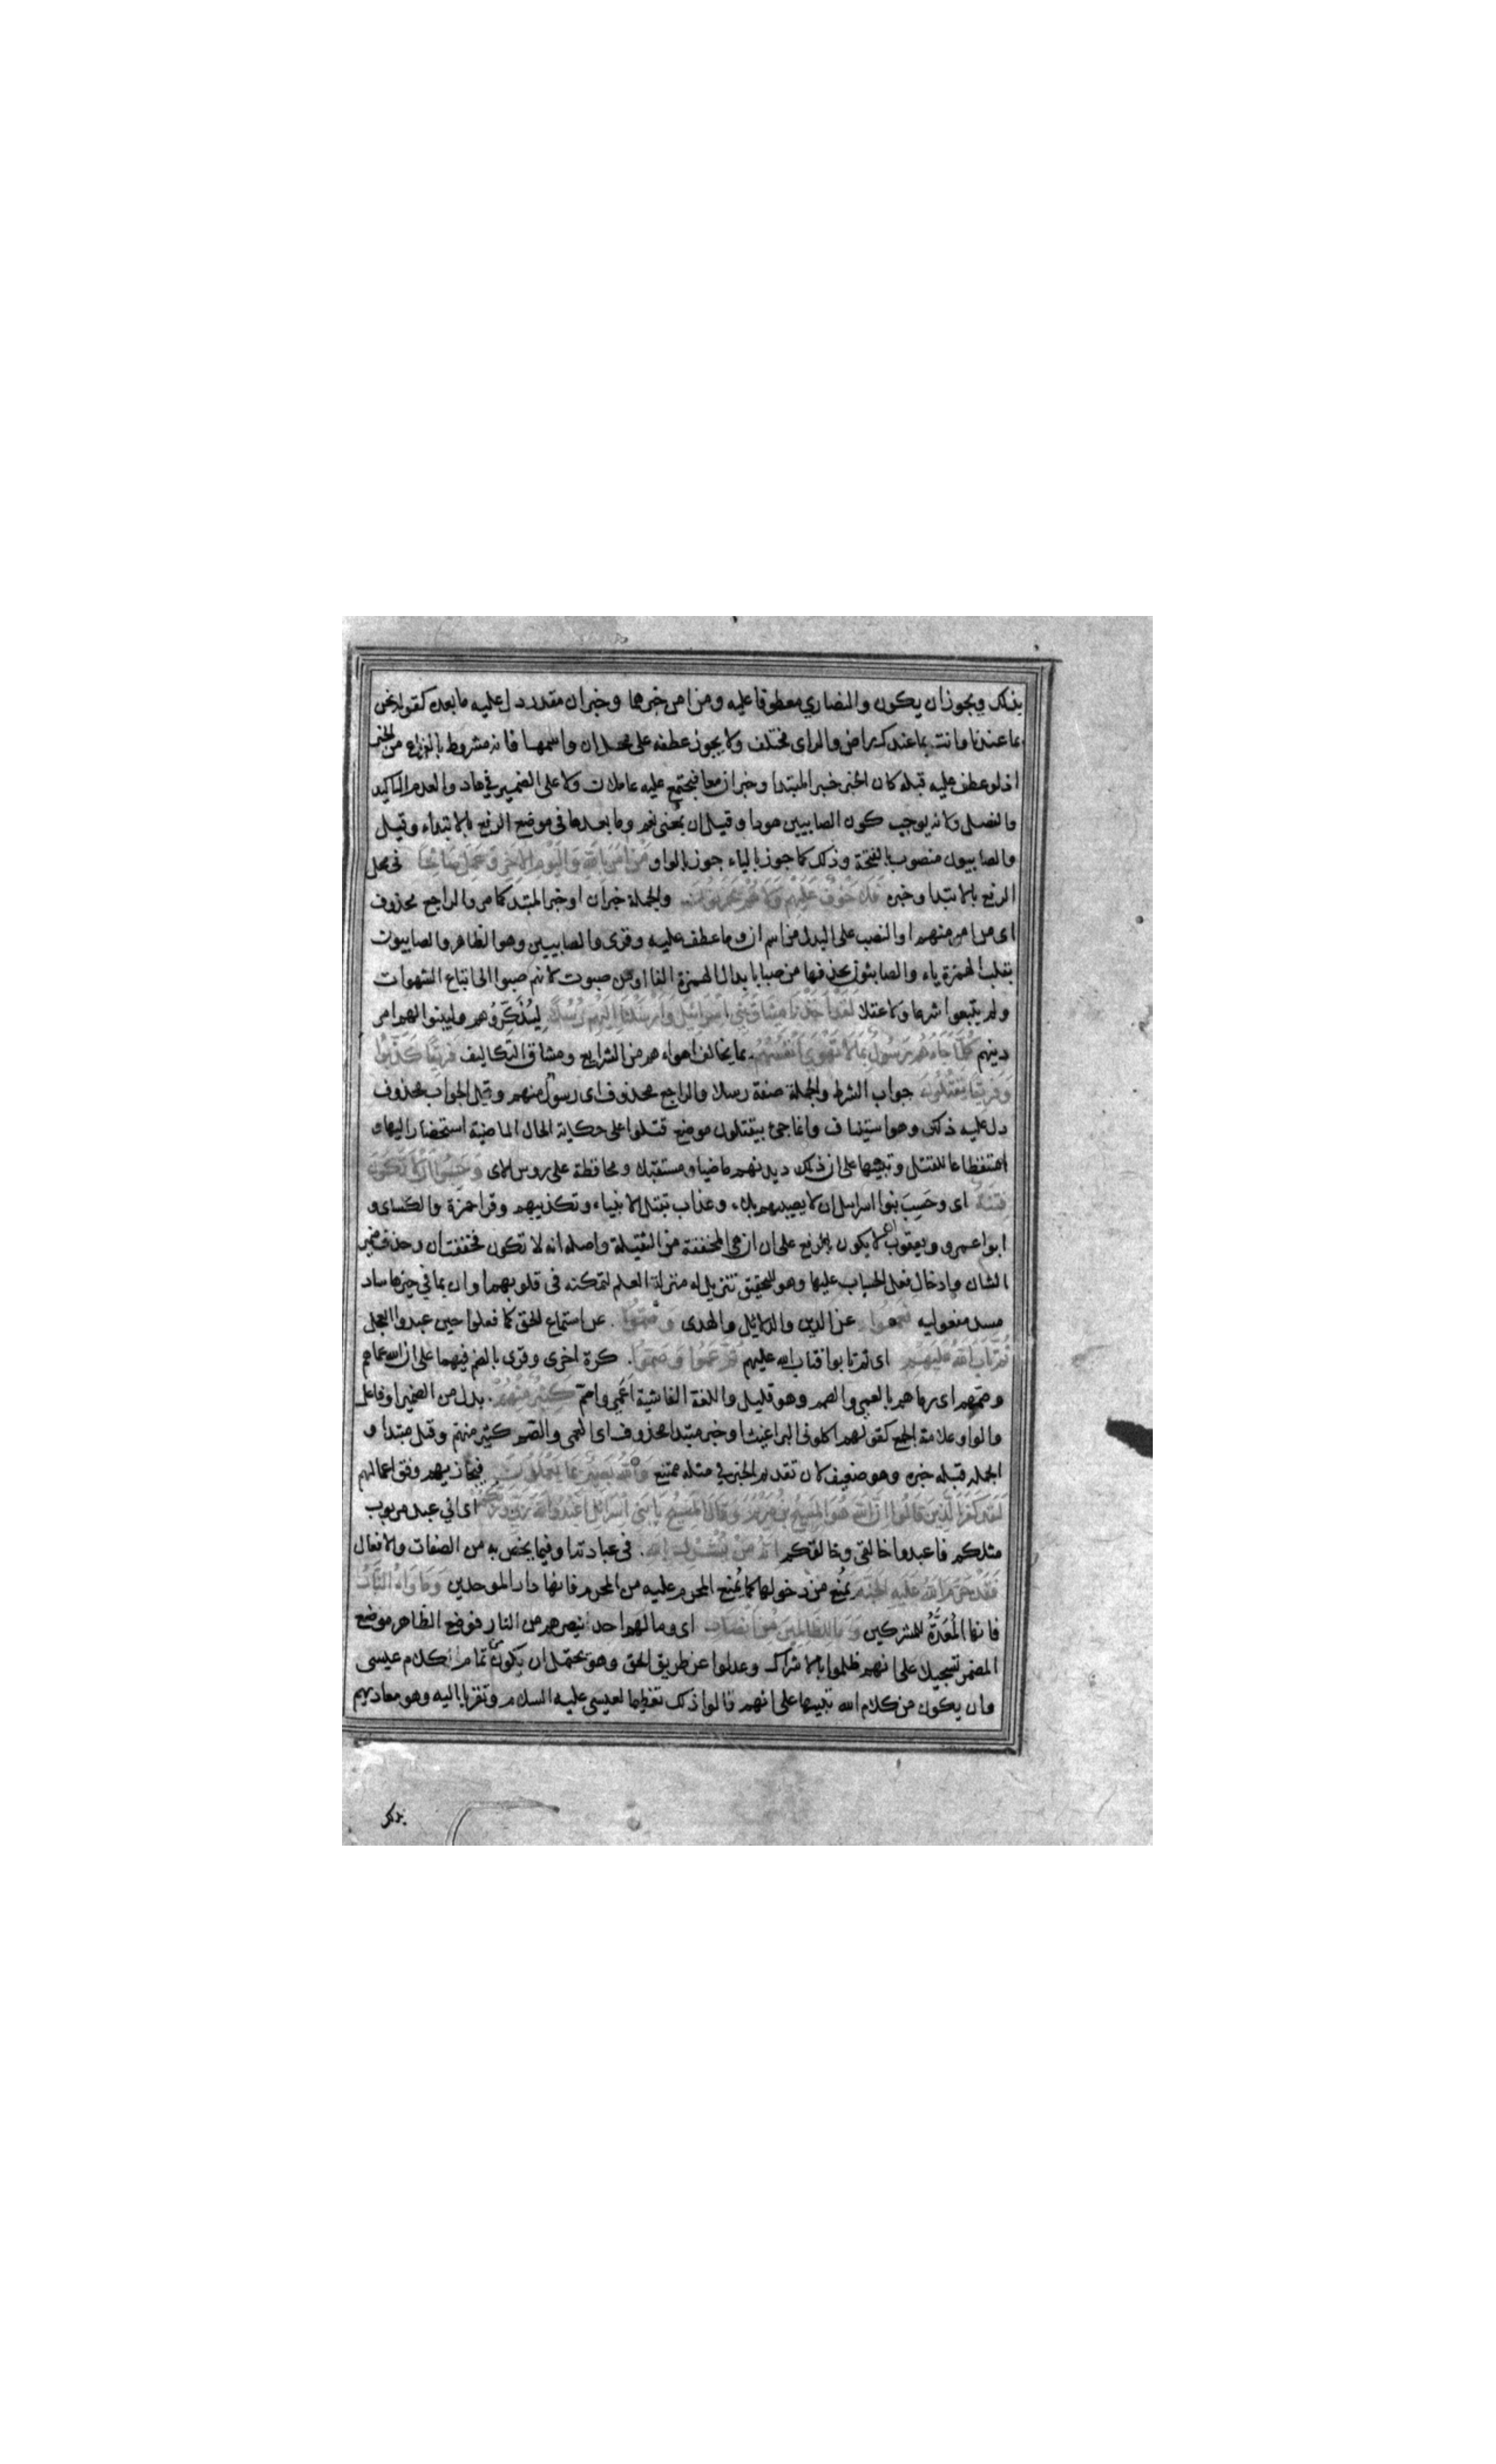 بذلك ويجوز ان يكون والنصاري معطوفا عليه ومن امن خبرهما وخبر ان مقدر دل عليه ما بعده كقوله نحن
بما عندنا وانت بما عندك راض والراى مختلف ولا يجوز عطفه على محل ان واسمها فانه مشروط بالفراغ من الخبر
اذ لو عطف عليه قبله كان الخبر خبر المبتدا وخبر ان معا فيجتمع عليه عاملان ولا على الضمير في هاد والعدم التاكيد
والفصل ولانه يوجب كون الصابيين هودا وقيل ان بمعنى نعم وما بعدها فى موضع الرفع بالابتداء وقيل
والصابيون منصوب بالفتحة وذلك كما جوز بالياء جوز بالواو من امن بالله واليوم الاخر وعمل صالحا فى محل
الرفع بالابتدا وخبره فلا خوف عليهم ولا هم يحزنون والجملة خبر ان او خبر المبتدا كما مر والراجع محذوف
اى من امن منهم او النصب على البدل من اسم ان وما عطف عليه وقرى والصابيين وهو الظاهر والصابيون
بقلب الهمزة ياء والصابون بحذفها من صبا بابدال الهمزة الفا او من صبوت لانهم صبوا الى اتباع الشهوات
ولم يتبعوا شرعا ولا عقلا لقد اخذنا ميثاق بني اسرائيل وارسلنا اليهم رسلا ليذكروهم وليبنوا لهم امر
دينهم كلما جاءهم رسول بما لا تهوى انفسهم بما يخالف اهواءهم من الشرايع ومشاق التكاليف فريقا كذبوا
وفريقا يقتلون جواب الشرط والجملة صفة رسلا والراجع محذوف اى رسول منهم وقيل الجواب محذوف
دل عليه ذلك وهو استيناف وانما جئ بيقتلون موضع قتلوا على حكاية الحال الماضية استحضارا لها و
استفظاعا للقتل وتنبيها على ان ذلك ديدنهم ماضيا ومستقبلا ومحافظة على روس الاى وحسبوا ان لا تكون
فتنة اى وحسب بنوا اسرايل ان لا يصيبهم بلاء وعذاب بقتل الانبياء وتكذيبهم وقرا حمزة والكساى و
ابوا عمرو ويعقوب ان لا يكون بالرفع على ان ان هي المخففة من الثقيلة واصله انه لا تكون فخففت ان وحذف ضمير
الشان وادخال فعل الحسباب عليها وهو للتحقيق تنزيل له منزلة العلم لتمكنه فى قلوبهم وان بما في حيزها ساد
مسد مفعوليه فعموا عن الدين والدلائل والهدى وصموا عن استماع الحق كما فعلوا حين عبدوا العجل
ثم تاب الله عليهم اى ثم تابوا فتاب الله عليهم ثم عموا وصموا كرة اخرى وقرى بالضم فيهما على ان الله عماهم
وصمهم اى رماهم بالعمى والصمم وهو قليل واللغة الفاشية اعمى واصم كثير منهم بدل من الضمير او فاعل
والواو علامة الجمع كقولهم اكلوني البراغيث او خبر مبتدا محذوف اى العمى والصم كثير منهم وقيل مبتدا و
الجملة قبله خبره وهو ضعيف لان تقديم الخبر في مثله ممتنع والله بصير بما يعملون فيجازيهم وفق اعمالهم
لقد كفر الذين قالوا ان الله هو المسيح بن مريم وقال المسيح يا بني اسرائيل اعبدوا الله ربي وربكم اى انى عبد مربوب
مثلكم فاعبدوا خالقى وخالقكم انه من يشرك بالله فى عبادته او فيما يختص به من الصفات والافعال
فقد حرم الله عليه الجنة يمنع من دخولها كما يمنع المحرم عليه من المحرم فانها دار الموحدين وماواه النار
فانها المعدة للمشركين وما للظالمين من انصار اى وما لهم احد ينصرهم من النار فوضع الظاهر موضع
المضمر تسجيلا على انهم ظلموا بالاشراك وعدلوا عن طريق الحق وهو يحتمل ان يكون من تمام كلام عيسى
وان يكون من كلام الله تنبيها على انهم قالوا ذلك تعظيما لعيسى عليه السلام وتقربا اليه وهو معاديهم
بذلك